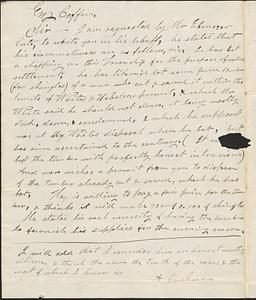 Geo. Coffin,
Sir — I am requested by Mr Ebenezer
to write you in his behalf, he states that
his circumstances are as follows, viz. he has bot
a chopping in this Township for the purpose of
settlement, he has likewise bot some pine timber
(for shingles) of a man who cut & sawed it within the
limits of White's & permit, & which Mr
White said he should not claim, it being mostly
down, & condemned, & which he supposed
was at Mr White's disposal when he bot, but
has since ascertained to the contrary. (It
bot the timber with perfectly honest intentions)
And now wishes a permit from you to dispose
of the timber already cut & sawed, which he has
bot. He is willing to pay a fair price for the
& thinks it will make of shingles
He states his real necessity of having the timber
to furnish his supplies for the ensuing season.
I will add that I consider him an honest worthy
citizen, & that the above is the truth of the case, & the
most of which I know